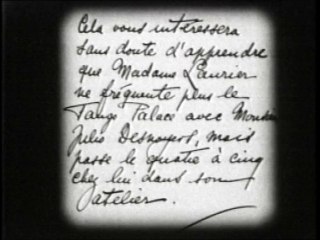 Cela vous intéressera
sans doute d'apprendre
que Madame Laurier
ne fréquente plus le
Tango Palace avec Monsieur
Julio Desnoyers, mais
passe le quatre à cinq
chez lui dans son
atelier.